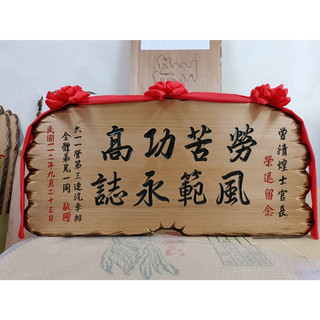 曾清煌士官長
榮退留念
勞苦功高
風範永誌
六一一營第三連汽車排
全體弟兄一同 敬贈
民國一一二年九月二十三日